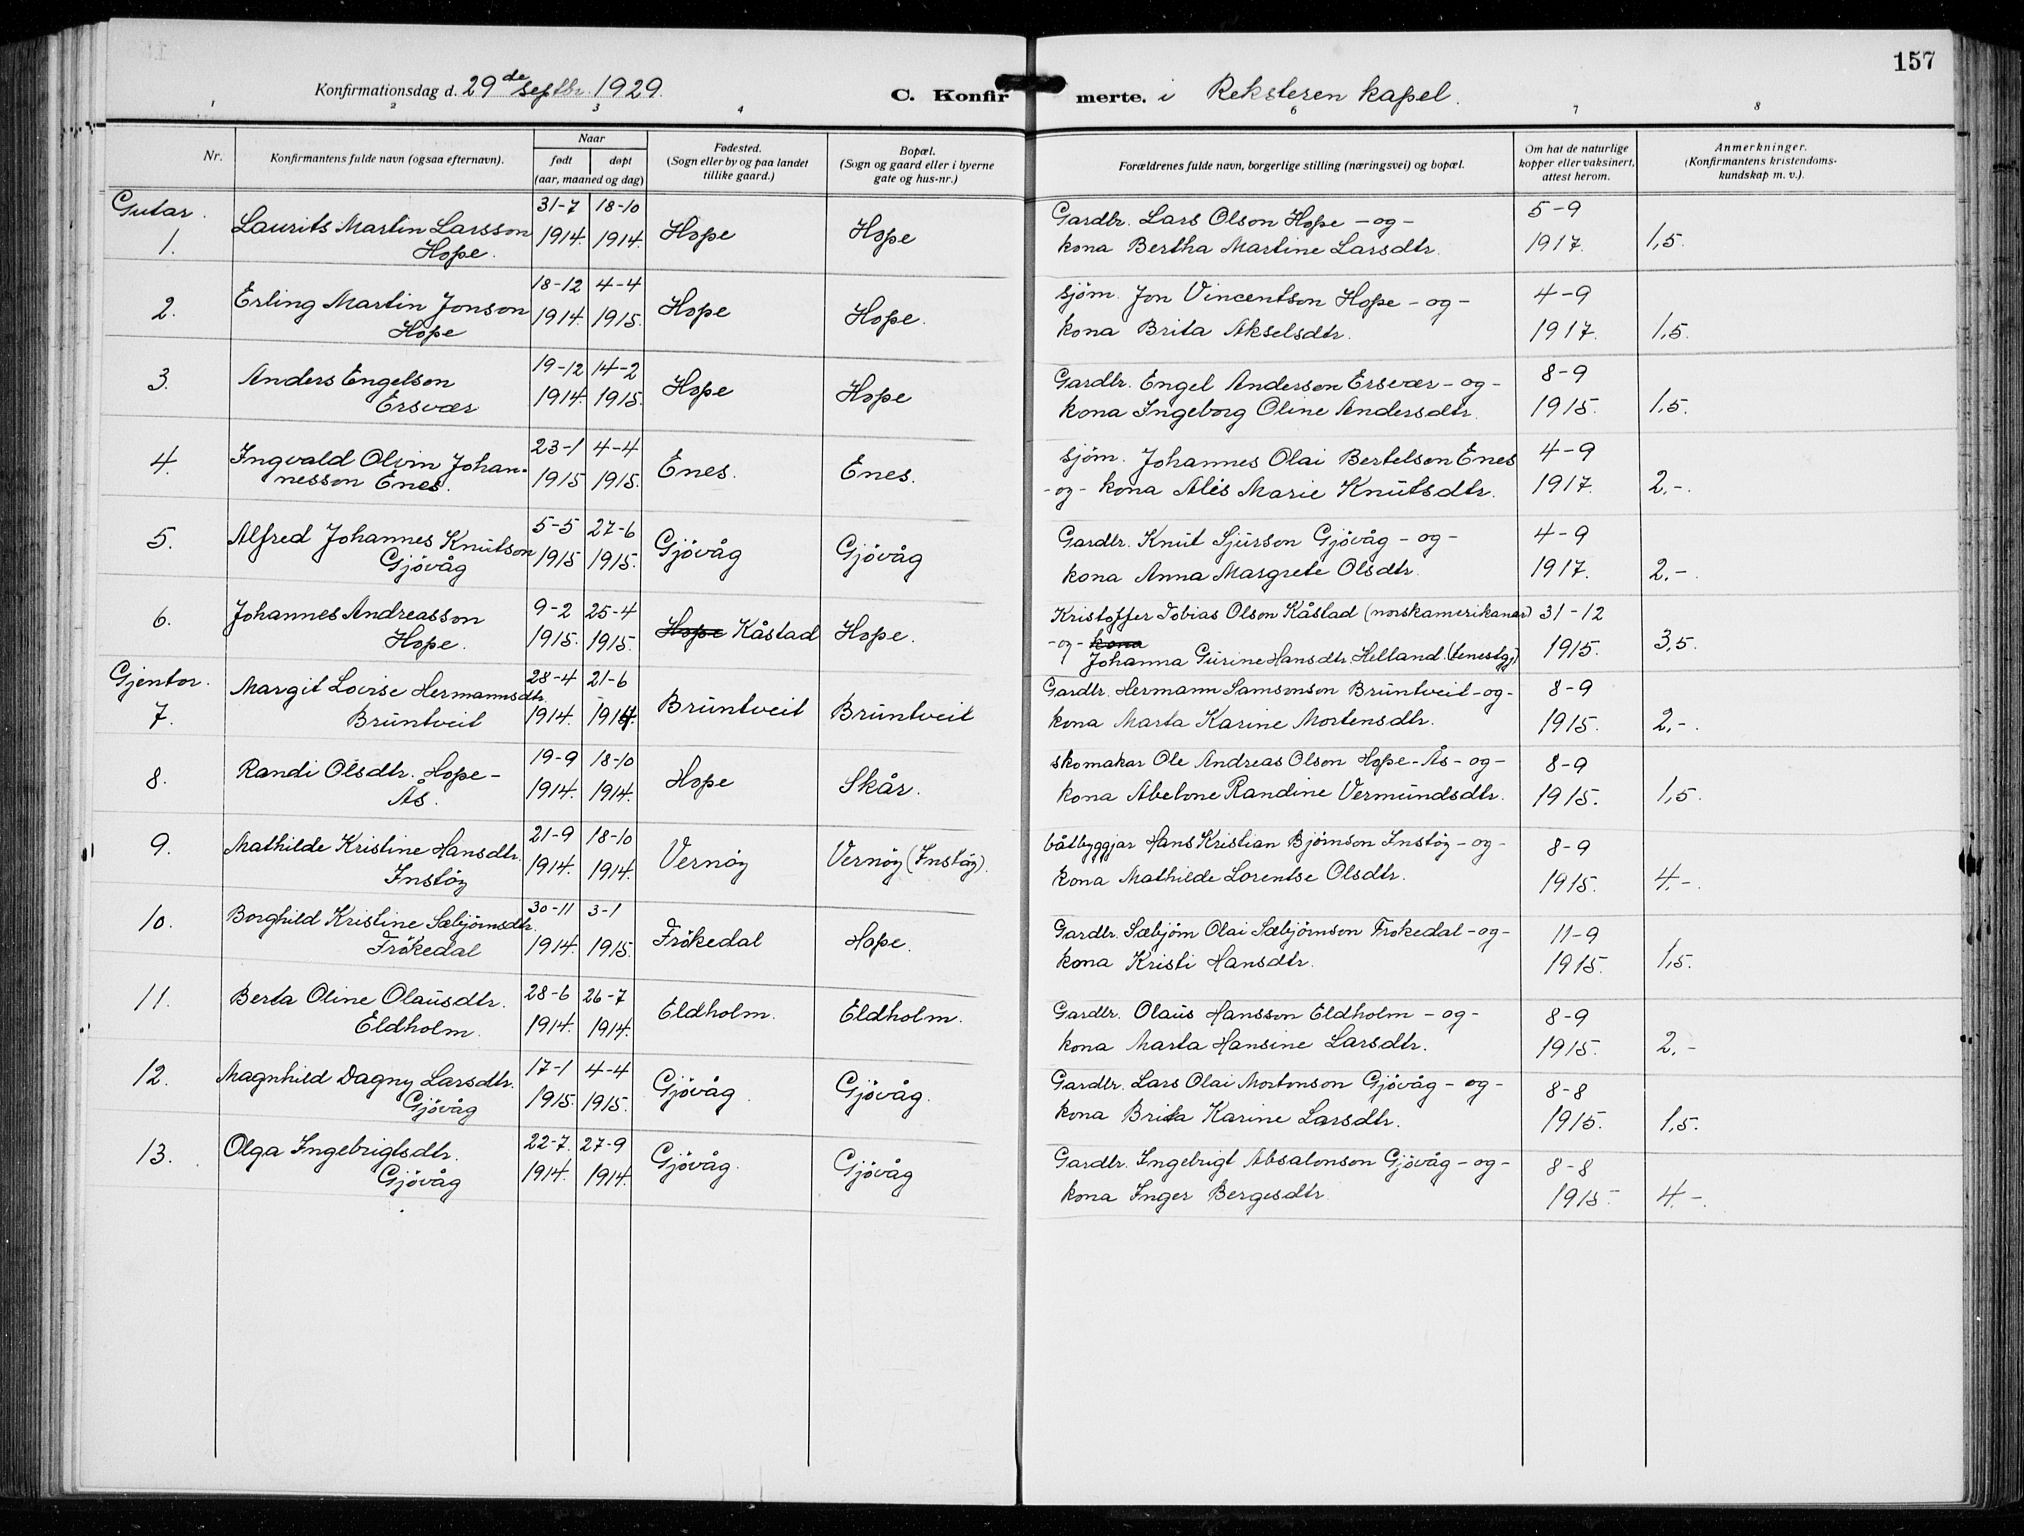 157
Konfirmationsdag d. 29de septbr. 1929.
C. Konfirmerte. i Reksteren kapel.
1 2 3 4 6 7 8
Nr.
Konfirmantens fulde navn (ogsaa efternavn).
Naar
født døpt
(aar, maaned og dag)
Fødested.
(Sogn eller by og paa landet
tillike gaard.)
Bopæl.
(Sogn og gaard eller i byerne
gate og hus-nr.)
Forældrenes fulde navn, borgerlige stilling (næringsvei) og bopæl.
Om hat de naturlige
kopper eller vaksinert,
attest herom.
Anmerkninger.
(Konfirmantens kristendoms-
kundskap m. v.).
Gutar.
1. Laurits Martin Larsson 31-7 18-10 Hope Hope Gardbr. Lars Olson Hope - og - 5-9
Hope. 1914. 1914. kona Bertha Martine Larsdtr. 1917. 1,5.
2. Erling Martin Jonson 18-12 4-4 Hope Hope. sjøm. Jon Vincentson Hope - og - 4-9
Hope 1914. 1915. kona Brita Akselsdtr. 1917. 1,5.
3. Anders Engelson 19-12 14-2 Hope Hope Gardbr. Engel Anderson Ersvær - og - 8-9
Ersvær 1914. 1915. kona Ingeborg Oline Andersdtr. 1915. 1,5.
4. Ingvald Olvin Johan- 23-1 4-4 Enes. Enes. sjøm. Johannes Olai Bertelson Enes 4-9
nesson Enes. 1915 1915. - og - kona Alis Marie Knutsdtr. 1917. 2,-.
5. Alfred Johannes Knutson 5-5 27-6 Gjövåg Gjövåg Gardbr. Knut Sjurson Gjövåg - og - 4-9
Gjövåg 1915 1915. kona Anna Margrete Olsdtr. 1917. 2,-.
6. Johannes Andreasson 9-2 25-4 Hope Kåstad Hope. Kristoffer Tobias Olson Kåstad (norskamerikanar) 31-12
Hope. 1915. 1915. - og - kona Johanna Gurine Hansdtr. Helland. (tenestgj) 1915. 3,5.
Gjentor.
7. Margit Lovise Hermannsdtr 28-4 21-6 Bruntveit Bruntveit Gardbr. Hermann Samsonson Bruntveit - og - 8-9
Bruntveit 1914. 1914. kona Marta Karine Mortensdtr. 1915. 2,-.
8. Randi Olsdtr. Hope - 19-9 18-10 Hope Skår. skomakar Ole Andreas Olson Hope - Ås - og - 8-9
Ås. 1914. 1914. kona Abelone Randine Vermundsdtr. 1915. 1,5.
9. Mathilde Kristine Hansdtr. 21-9 18-10 Vernöy Vernöy (Instöy). båtbyggjar Hans Kristian Bjørnson Instöy - og - 8-9
Instöy 1914. 1914. kona Mathilde Lorentse Olsdtr. 1915. 4,-.
10. Borghild Kristine Sæbjörnsdtr. 30-11 3-1 Frökedal Hope. Gardbr. Sæbjörn Olai Sæbjörnson Frökedal - og - 11-9
Frökedal 1914. 1915. kona Kristi Hansdtr. 1915. 1,5.
11. Berta Oline Olausdtr. 28-6 26-7 Eldholm. Eldholm. Gardbr. Olaus Hansson Eldholm - og - 8-9
Eldholm. 1914. 1914. kona Marta Hansine Larsdtr. 1915. 2,-
12. Magnhild Dagny Larsdtr. 17-1 4-4 Gjövåg. Gjövåg. Gardbr. Lars Olai Mortenson Gjövåg - og - 8-8
Gjövåg 1915. 1915. kona Brita Karine Larsdtr. 1915. 1,5.
13. Olga Ingebrigtsdtr. 22-7. 27-9 Gjövåg. Gjövåg Gardbr. Ingebrigt Absalonson Gjövåg - og - 8-8
Gjövåg 1914. 1914. kona Inger Bergesdtr. 1915. 4,-